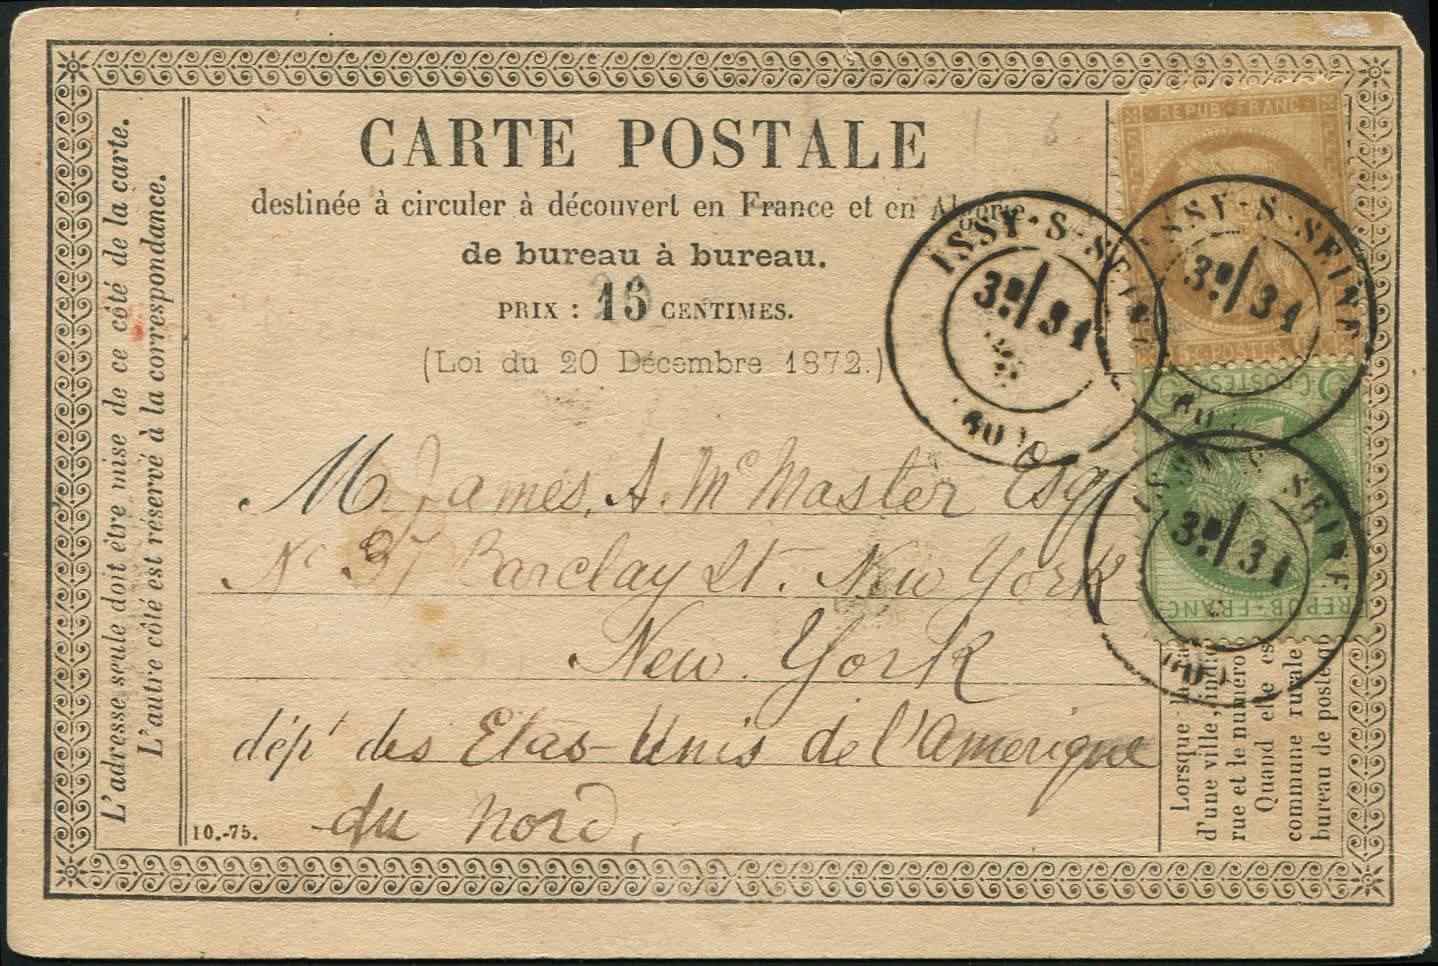 CARTE POSTALE
destinée à circuler à découvert en France et en Algérie
de bureau à bureau.
PRIX : 15 CENTIMES.
(Loi du 20 Décembre 1872.)
M. James. A. Mc Master Esq
No 37 Barclay St. New York
New York
dép' des Etas-Unis de l'Amerique
du nord,
10.-75.
L'adresse seule doit être mise de ce côté de la carte.
L'autre côté est réservé à la correspondance.
REPUB·FRANC
C·POSTES
ISSY·S·SEINE
3E/31
(60)
ISSY·S·SEINE
3E/31
(60)
POSTES
REPUB·FRANC
ISSY S SEINE
3E/31
(60)
Lorsque
d'une ville, indi
rue et le numéro
Quand elle es
commune rurale
bureau de poste qu